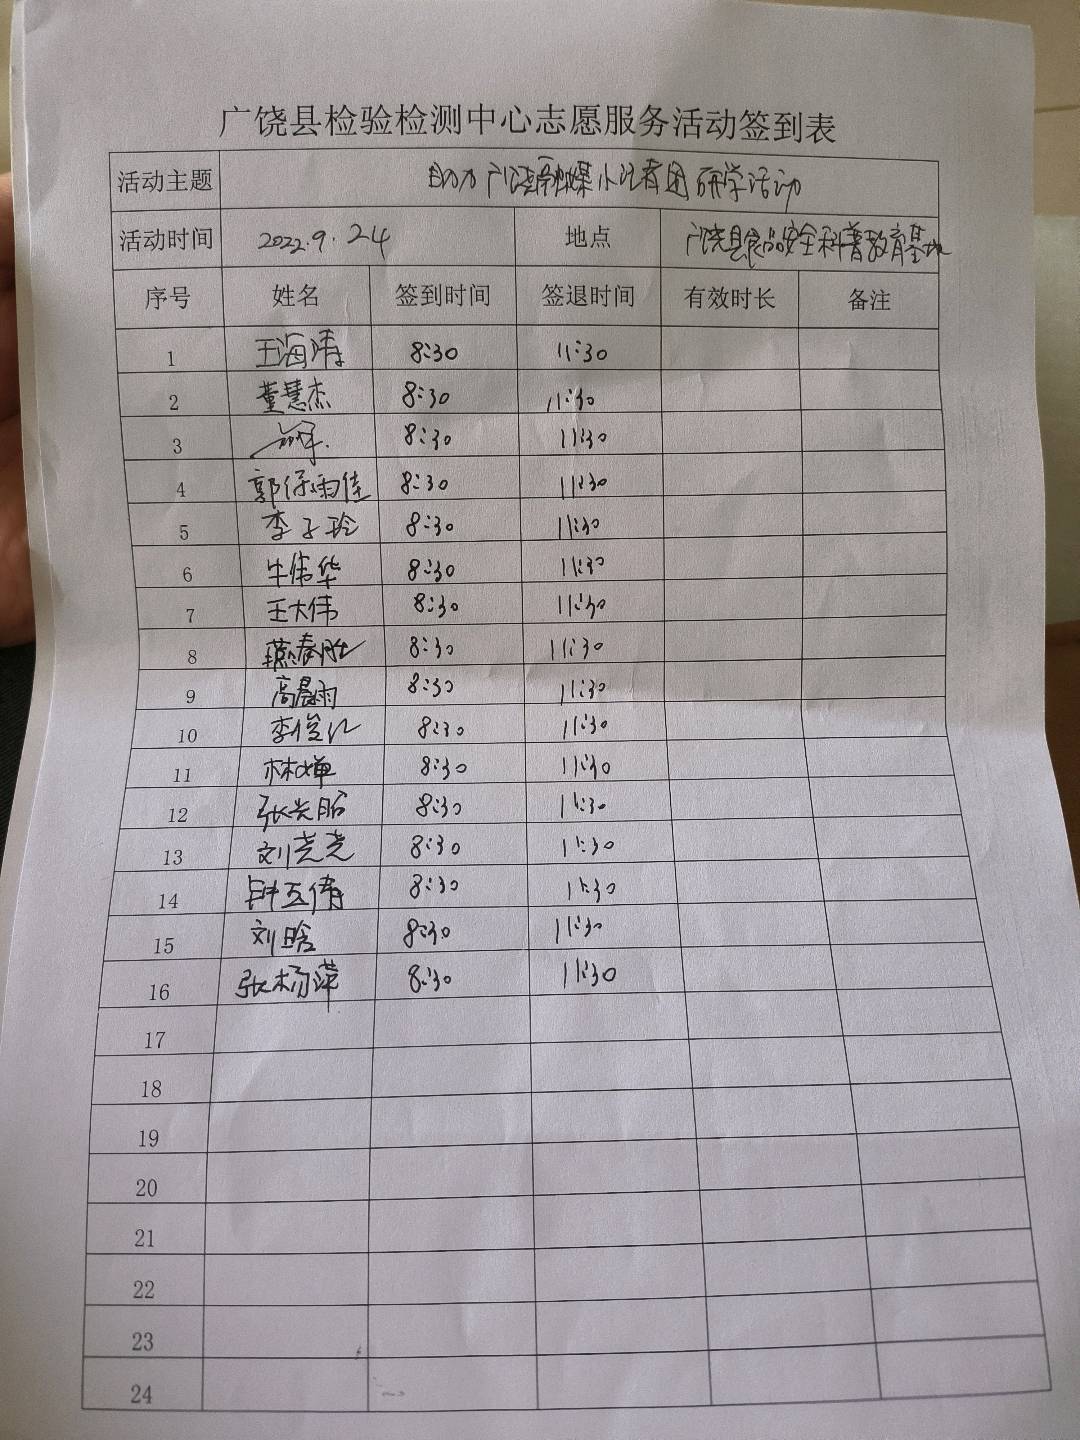 广饶县检验检测中心志愿服务活动签到表
活动主题 助力广饶融媒小记者团研学活动
活动时间 2022.9.24 地点 广饶县食品安全科普教育基地
序号 姓名 签到时间 签退时间 有效时长 备注
1 王海涛 8:30 11:30
2 董慧杰 8:30 11:30
3 8:30 11:30
4 郭保雨佳 8:30 11:30
5 李子玲 8:30 11:30
6 牛伟华 8:30 11:30
7 王大伟 8:30 11:30
8 燕春胜 8:30 11:30
9 高晨雨 8:30 11:30
10 李俊仪 8:30 11:30
11 林婵 8:30 11:30
12 张兴昭 8:30 11:30
13 刘尧尧 8:30 11:30
14 8:30 11:30
15 刘晗 8:30 11:30
16 张杨萍 8:30 11:30
17
18
19
20
21
22
23
24